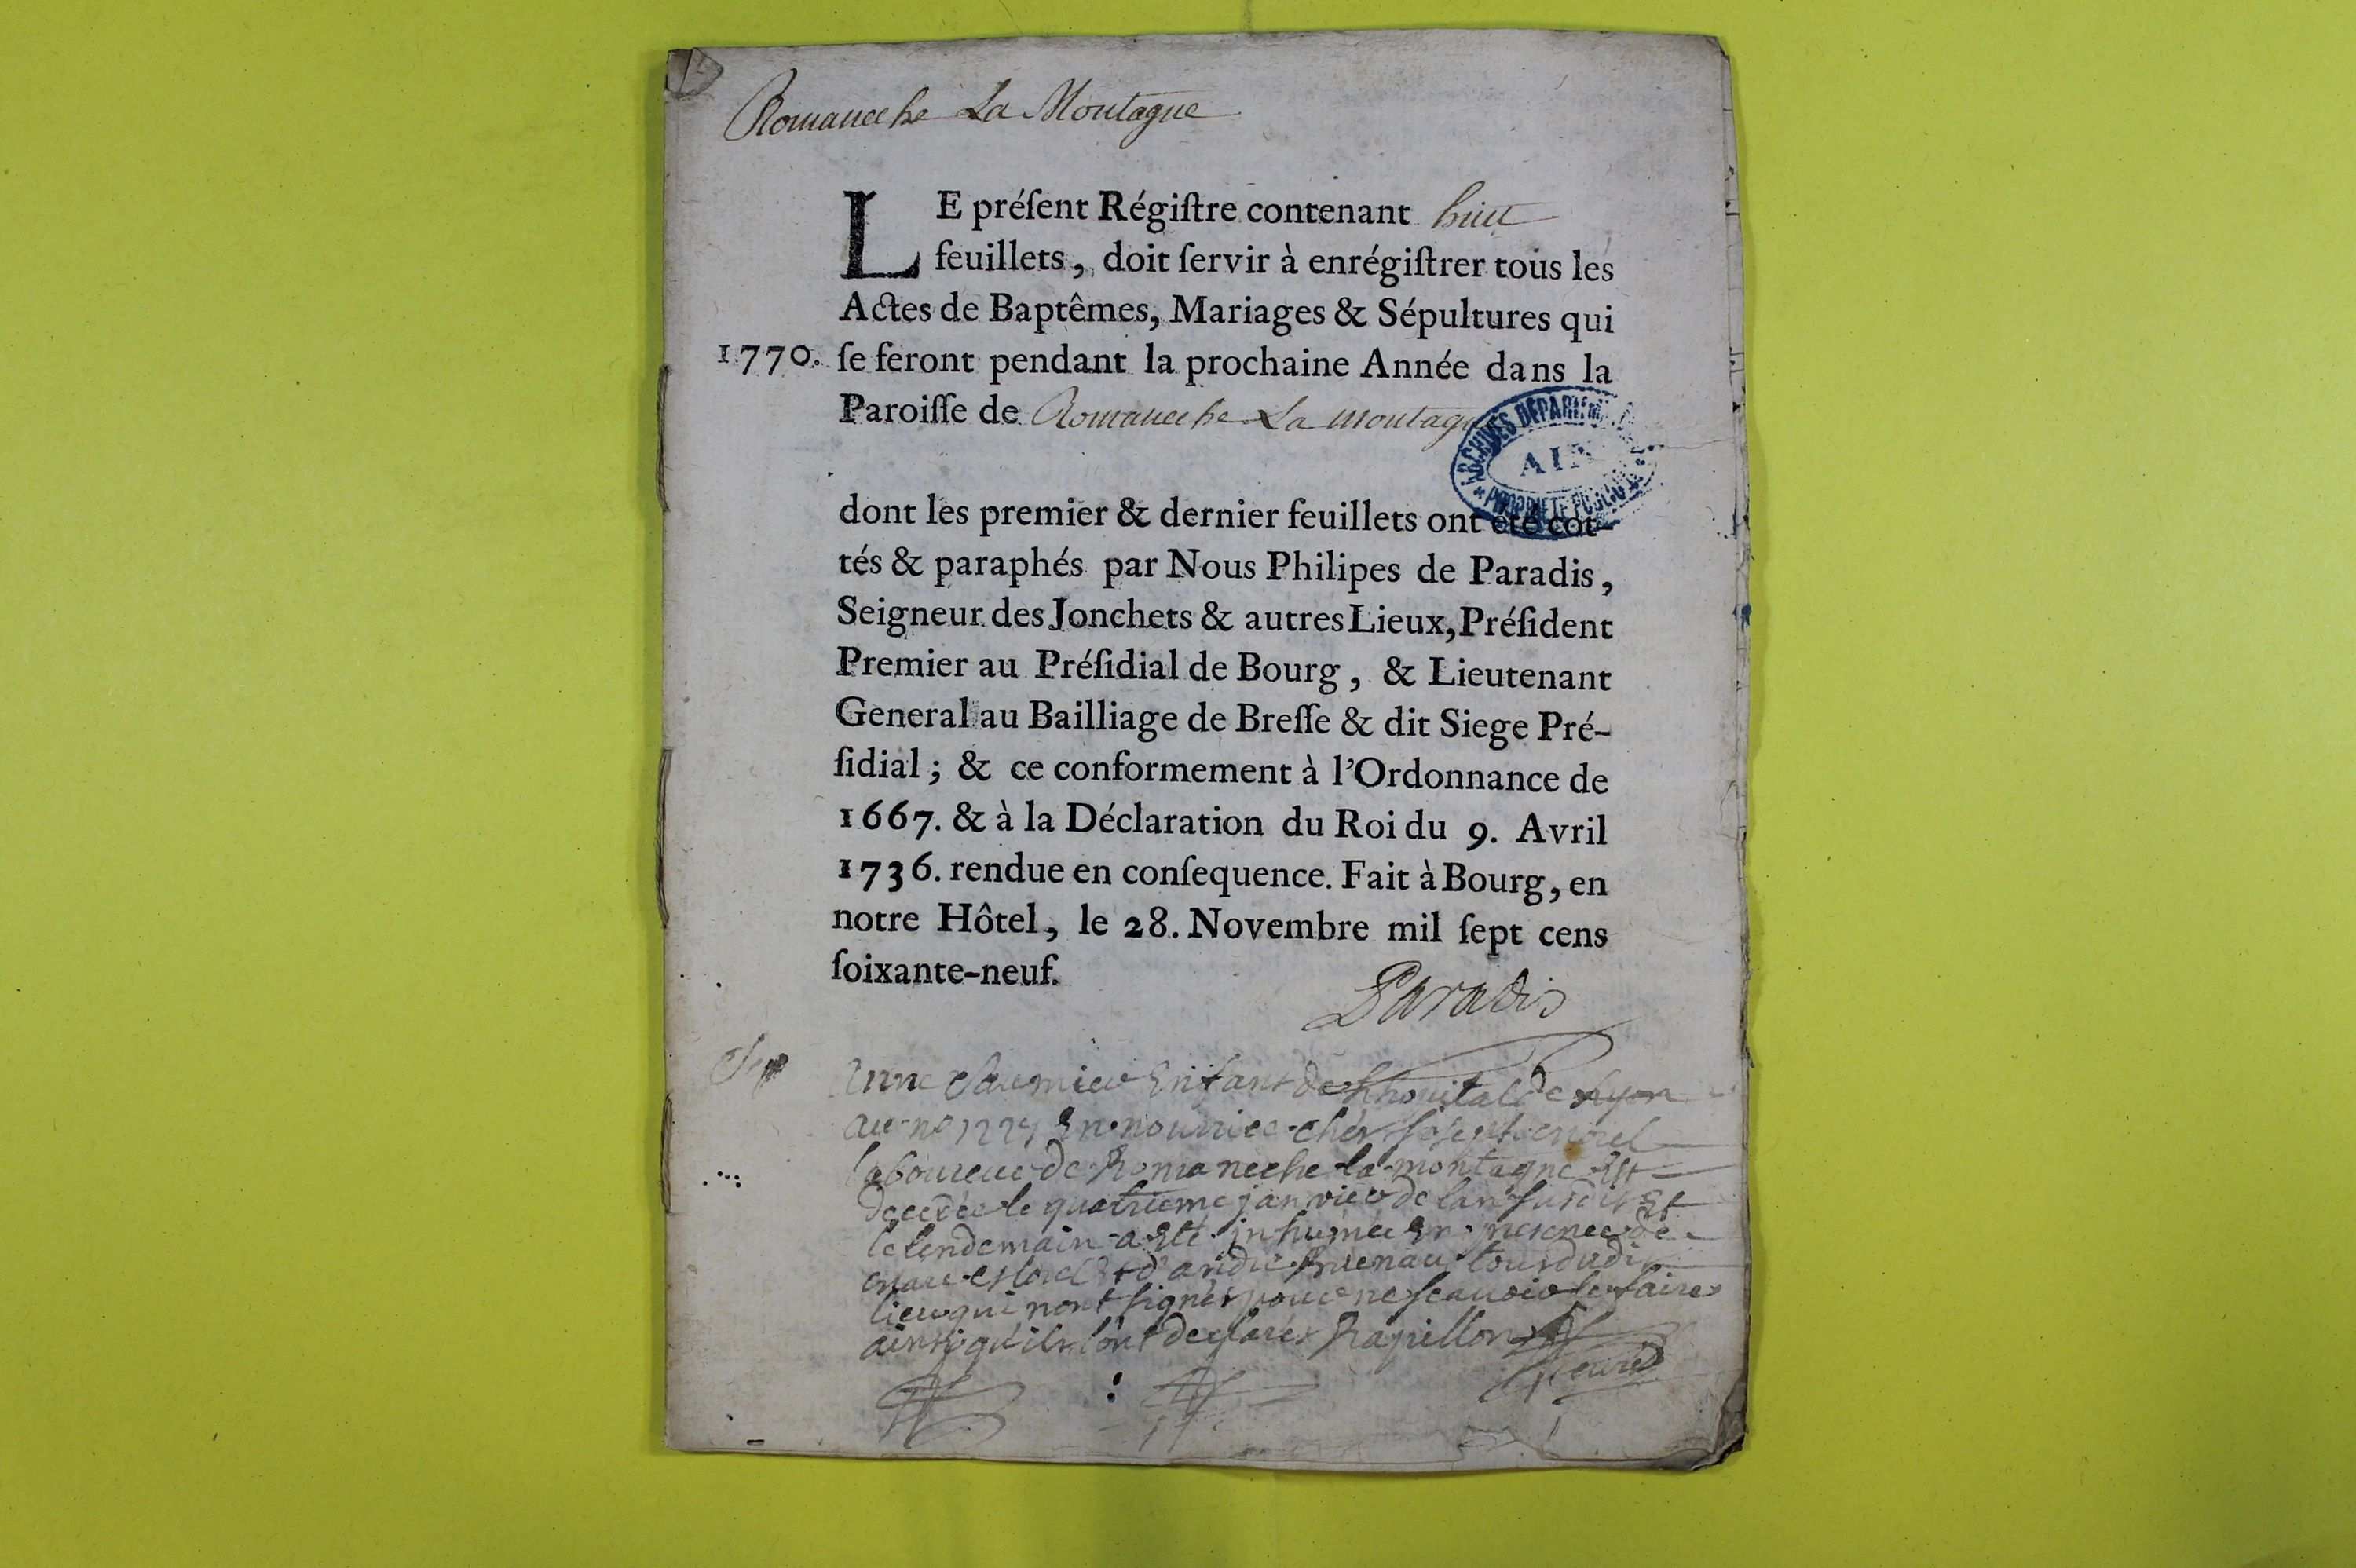 Romaneche La Montagne
LE préſent Régiſtre contenant huit
feuillets, doit ſervir à enrégiſtrer tous les
Actes de Baptêmes, Mariages & Sépultures qui
1770. ſe feront pendant la prochaine Année dans la
Paroiſſe de Romaneche La Montagne
ARCHIVES DEPARTEM
AIN
PROPRIETE PUBLIQUE
dont les premier & dernier feuillets ont été cot-
tés & paraphés par Nous Philipes de Paradis,
Seigneur des Jonchets & autres Lieux, Préſident
Premier au Préſidial de Bourg, & Lieutenant
General au Bailliage de Breſſe & dit Siege Pré-
ſidial; & ce conformement à l'Ordonnance de
1667. & à la Déclaration du Roi du 9. Avril
1736. rendue en conſequence. Fait à Bourg, en
notre Hôtel, le 28. Novembre mil ſept cens
ſoixante-neuf.
Paradis
Anne enfant de lhopital de Lyon
au no en nourrice chés joseph morel
laboureur de Romaneche la montagne est
decedée le quatrieme janvier de lan susdit et
le lendemain a esté inhumée en presence de
morel et d'andré tous dudit
lieu qui nont signés pour ne scavoir le faire
ainsi qu'ils lont declarés Rapillon